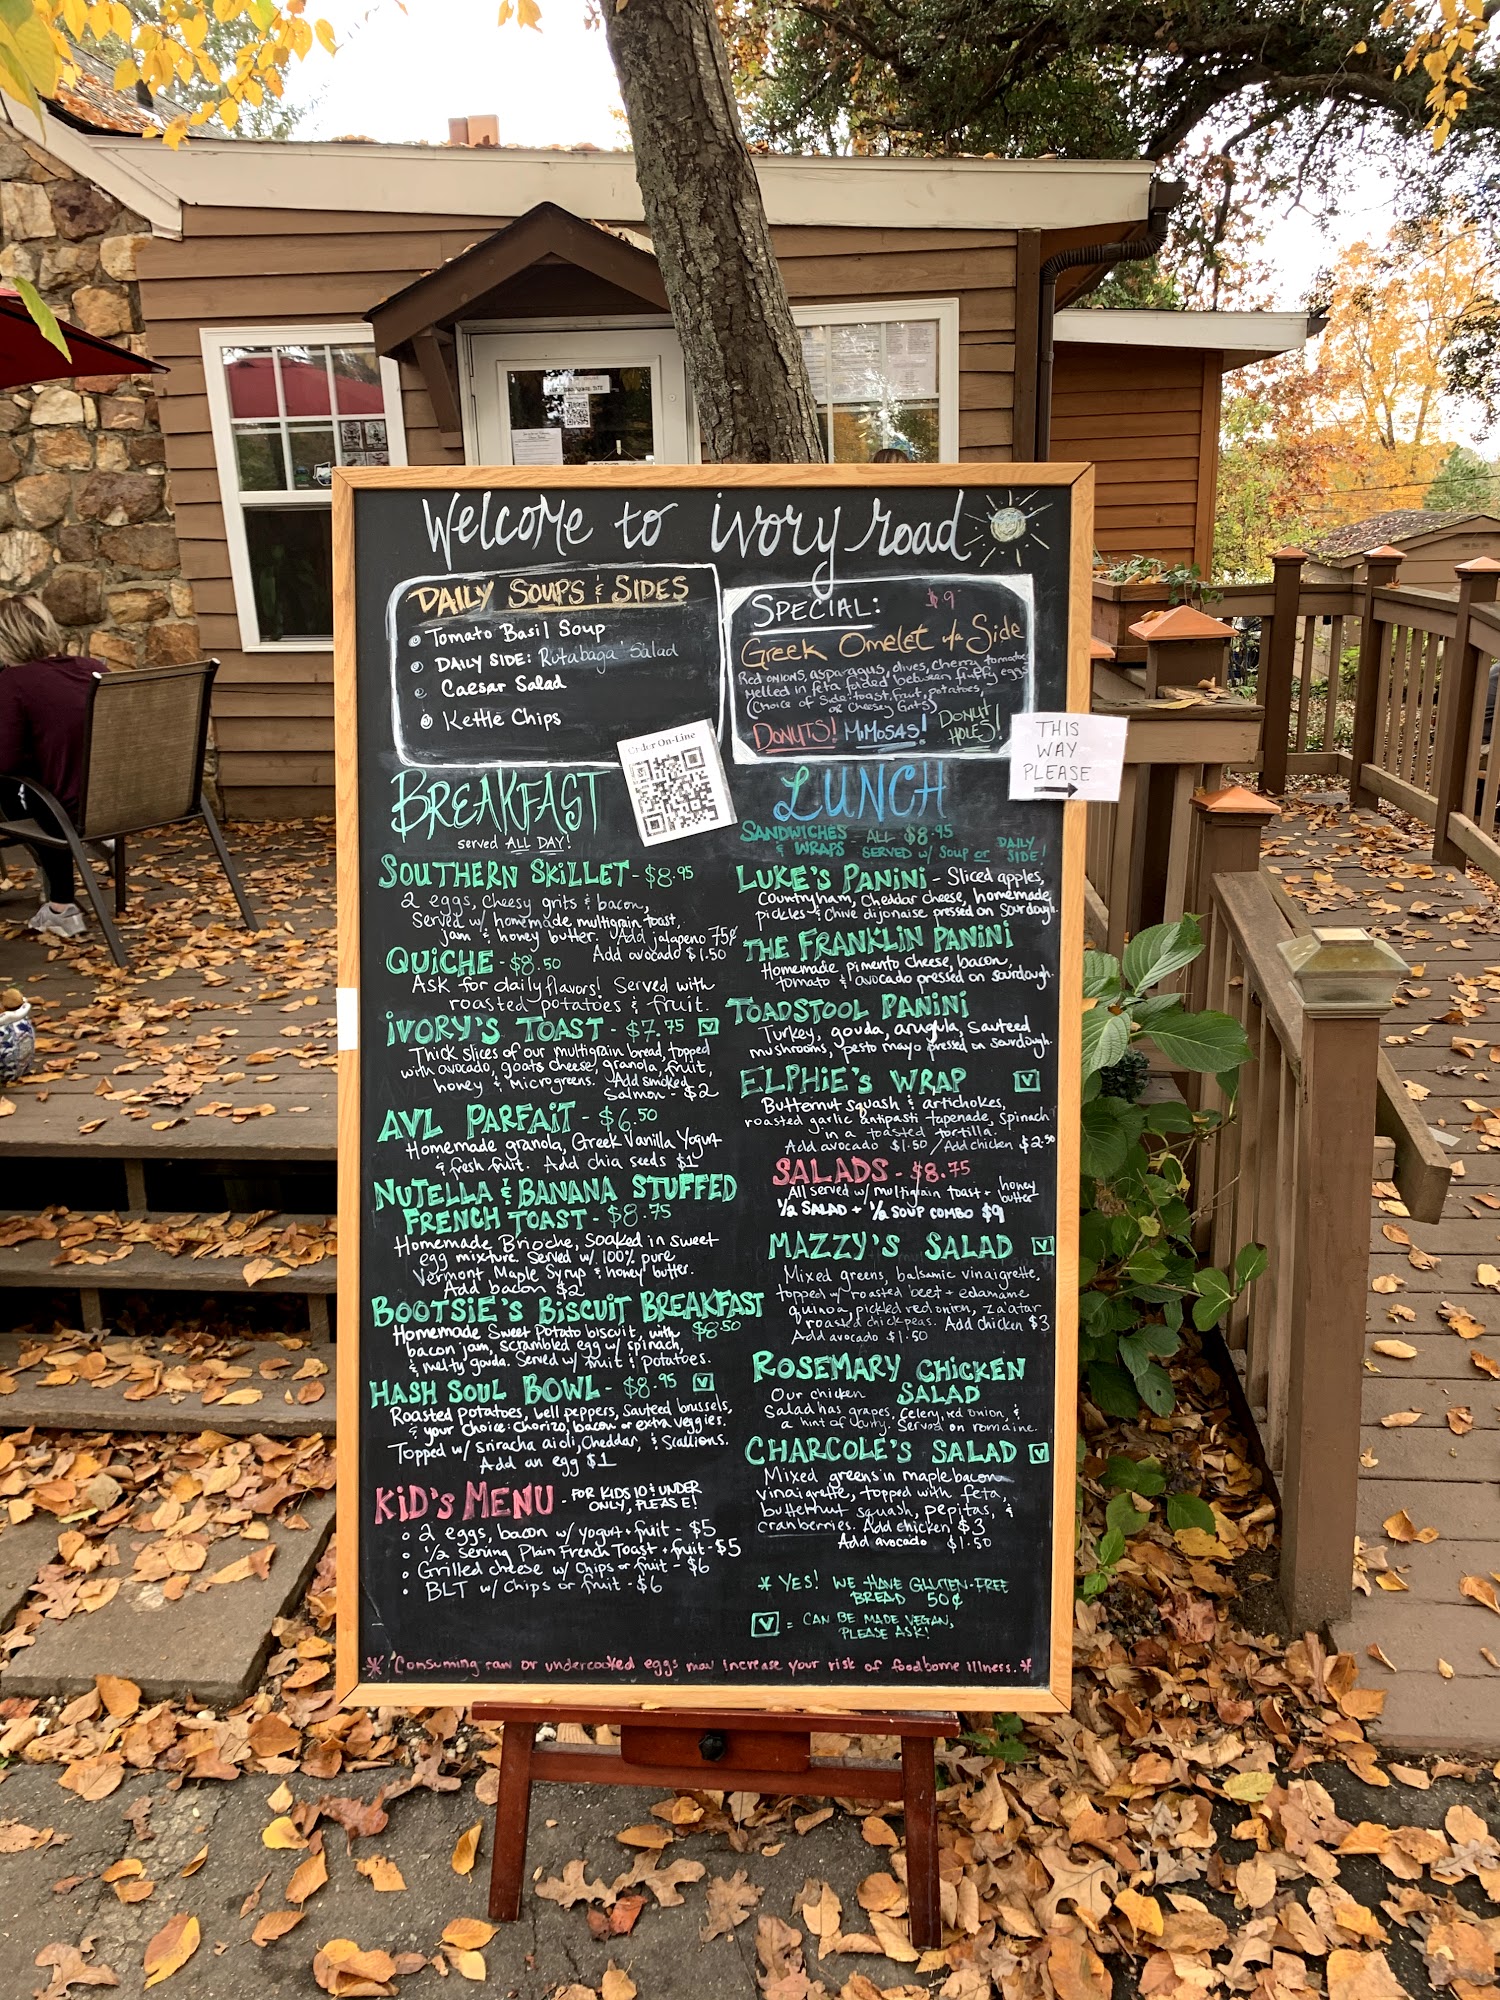 Welcome to ivory road
DAILY SOUPS & SIDES
Tomato Basil Soup
DAILY SIDE: Rutabaga Salad
Caesar Salad
Kettle Chips
SPECIAL: $9
Greek Omelet w/a Side
Red onions, asparagus, olives, cherry tomatoes
Melled in feta folded between fluffy eggs
(Choice of Side: toast, fruit, potatoes,
or Cheesy Grits)
DONUTS! MiMOSAS! DONUT
HOLES!
Order On-Line
THIS
WAY
PLEASE
BREAKFAST
served ALL DAY!
SOUTHERN SKiLLET - $8.95
2 eggs, cheesy grits & bacon,
Served w/ homemade multigrain toast,
jam & honey butter. Add jalapeno 75¢
Add avocado $1.50
QUiCHE - $8.50
Ask for daily flavors! Served with
roasted potatoes & fruit.
iVORY'S TOAST - $7.75 V
Thick slices of our multigrain bread, topped
with avocado, goats cheese, granola, fruit,
honey & microgreens. Add smoked
Salmon - $2
AVL PARFAiT - $6.50
Homemade granola, Greek Vanilla Yogurt
& fresh fruit. Add chia seeds $1
NUTELLA & BANANA STUFFED
FRENCH TOAST - $8.75
Homemade Brioche, soaked in sweet
egg mixture. Served w/ 100% pure
Vermont Maple Syrup & honey butter.
Add bacon $2
BOOTSiE'S BiSCUiT BREAKFAST
$8.50
Homemade Sweet Potato biscuit, with
bacon jam, scrambled egg w/ spinach,
& melty gouda. Served w/ fruit & potatoes.
HASH SOUL BOWL - $8.95 V
Roasted potatoes, bell peppers, sauteed brussels,
& your choice: chorizo, bacon or extra veggies.
Topped w/ sriracha aioli, Cheddar, & Scallions.
Add an egg $1
KiD'S MENU - FOR KIDS 10 & UNDER
ONLY, PLEASE!
2 eggs, bacon w/ yogurt + fruit - $5
1/2 Serving Plain French Toast + fruit - $5
Grilled cheese w/ Chips or fruit - $6
BLT w/ Chips or fruit - $6
LUNCH
SANDWICHES & WRAPS - ALL $8.95
SERVED w/ Soup or DAILY SIDE!
LUKE'S PANiNi - Sliced apples,
Country ham, Cheddar cheese, homemade
pickles & Chive dijonaise pressed on Sourdough.
THE FRANKLiN PANiNi
Homemade pimento cheese, bacon,
tomato & avocado pressed on sourdough.
TOADSTOOL PANiNi
Turkey, gouda, arugula, Sauteed
mushrooms, pesto mayo pressed on Sourdough.
ELPHiE'S WRAP V
Butternut squash & artichokes,
roasted garlic antipasti tapenade, spinach
in a toasted tortilla.
Add avocado $1.50 / Add chicken $2.50
SALADS - $8.75
All served w/ multigrain toast + honey butter
1/2 SALAD + 1/2 SOUP COMBO $9
MAZZY'S SALAD V
Mixed greens, balsamic vinaigrette,
topped w/ roasted beet + edamame
quinoa, pickled red onion, za'atar
roasted chickpeas. Add chicken $3
Add avocado $1.50
ROSEMARY CHiCKEN
SALAD
Our chicken
Salad has grapes, Celery, red onion, &
a hint of curry. Served on romaine.
CHARCOLE'S SALAD V
Mixed greens in maple bacon
vinaigrette, topped with feta,
butternut squash, pepitas, &
cranberries. Add chicken $3
Add avocado $1.50
* YES! WE HAVE GLUTEN-FREE
BREAD 50¢
V = CAN BE MADE VEGAN,
PLEASE ASK!
* Consuming raw or undercooked eggs may increase your risk of foodborne illness. *